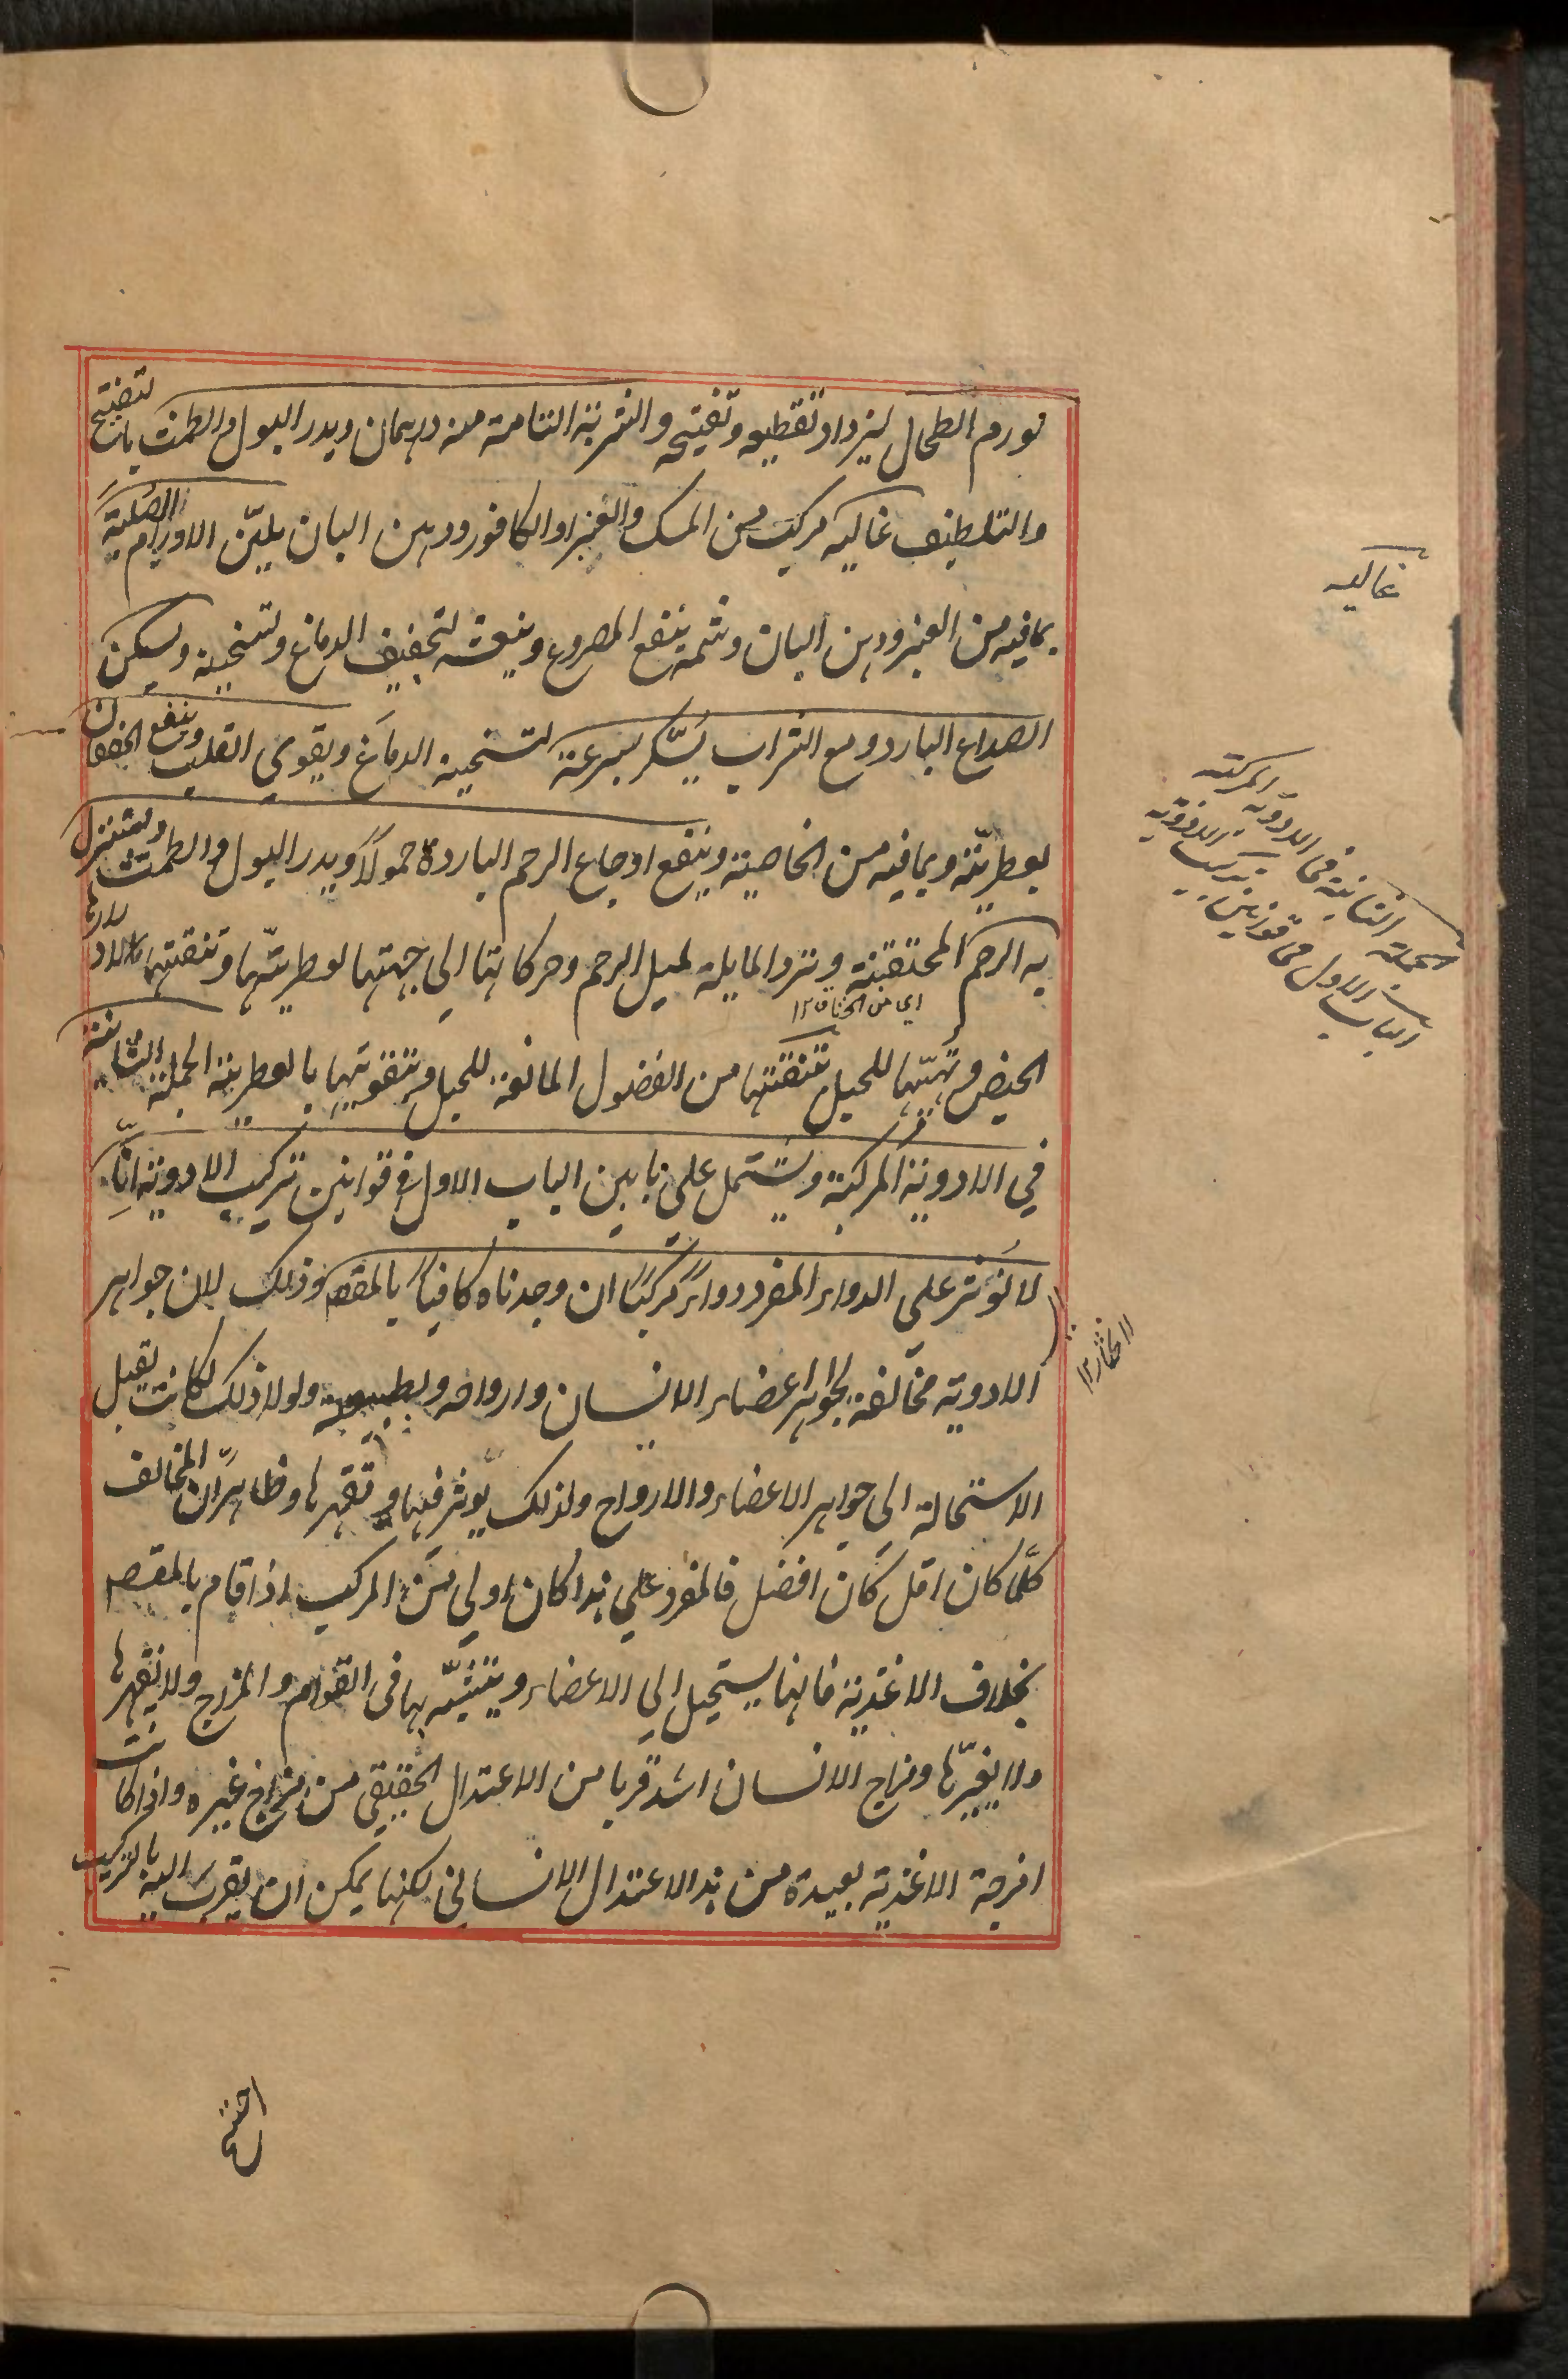 لورم الطحال ليزداد تقطيعه وتفتيحه والشربة التامة منه درهمان ويدر البول والطمث بالتفتيح
والتلطيف غاليه مركب من المسك والعنبر او الكافور ودهن البان يليّن الاورام الصلبة
بما فيه من العنبر ودهن البان وشمه ينفع المصروع وينعشه لتجفيف الدماغ وتسخينه ويسكن
الصداع البارد ومع الشراب يُسّكر بسرعة لتسخينه الدماغ ويقوي القلب وينفع الخفقان
بعطريّته وبما فيه من الخاصية وينفع اوجاع الرحم الباردة حمولاً ويدر البول والطمث ويستنزل
به الرحم المختنقة وترد المايلة لميل الرحم وحركاتها الي جهتها لعطريتّها وتنقتها لادرارها
اي من الخناق ١٢
الحيض وتهيّها للحبل تنقيتها من الفضول المانعة للحبل وتقويتها بالعطرية الجملة الثانية
في الادوية المركبة ويشتمل علي بابين الباب الاول في قوانين تركيب الادوية انّا
لا نُؤثر علي الدواء المفرد دواءً مركبًا ان وجدناه كافياً بالمقصد وذلك لان جواهر
الادوية مخالفة لجواهر اعضاء الانسان وارواحه ولطبيعته ولولا ذلك لكانت تقبل
الاستحالة الي جواهر الاعضاء والارواح ولذلك يؤثر فيها وتقهرها وظاهرٌ ان المخالف
كلّما كان اقل كان افضل فالمفرد علي هذا كان اولي من المركب اذا قام بالمقصد
بخلاف الاغذية فانها يستحيل الي الاعضاء ويتشبّه بها في القوام والمزاج ولا تقهرها
ولا يغيّرها ومزاج الانسان اشد قربا من الاعتدال الحقيقي من مزاج غيره واذا كانت
امزجة الاغذية بعيدة من هذا الاعتدال الانساني لكنها يمكن ان يقرب اليه بالتركيب
غاليه
الجملة الثانية في الادوية المركبة
الباب الاول في قوانين تركيب الادوية